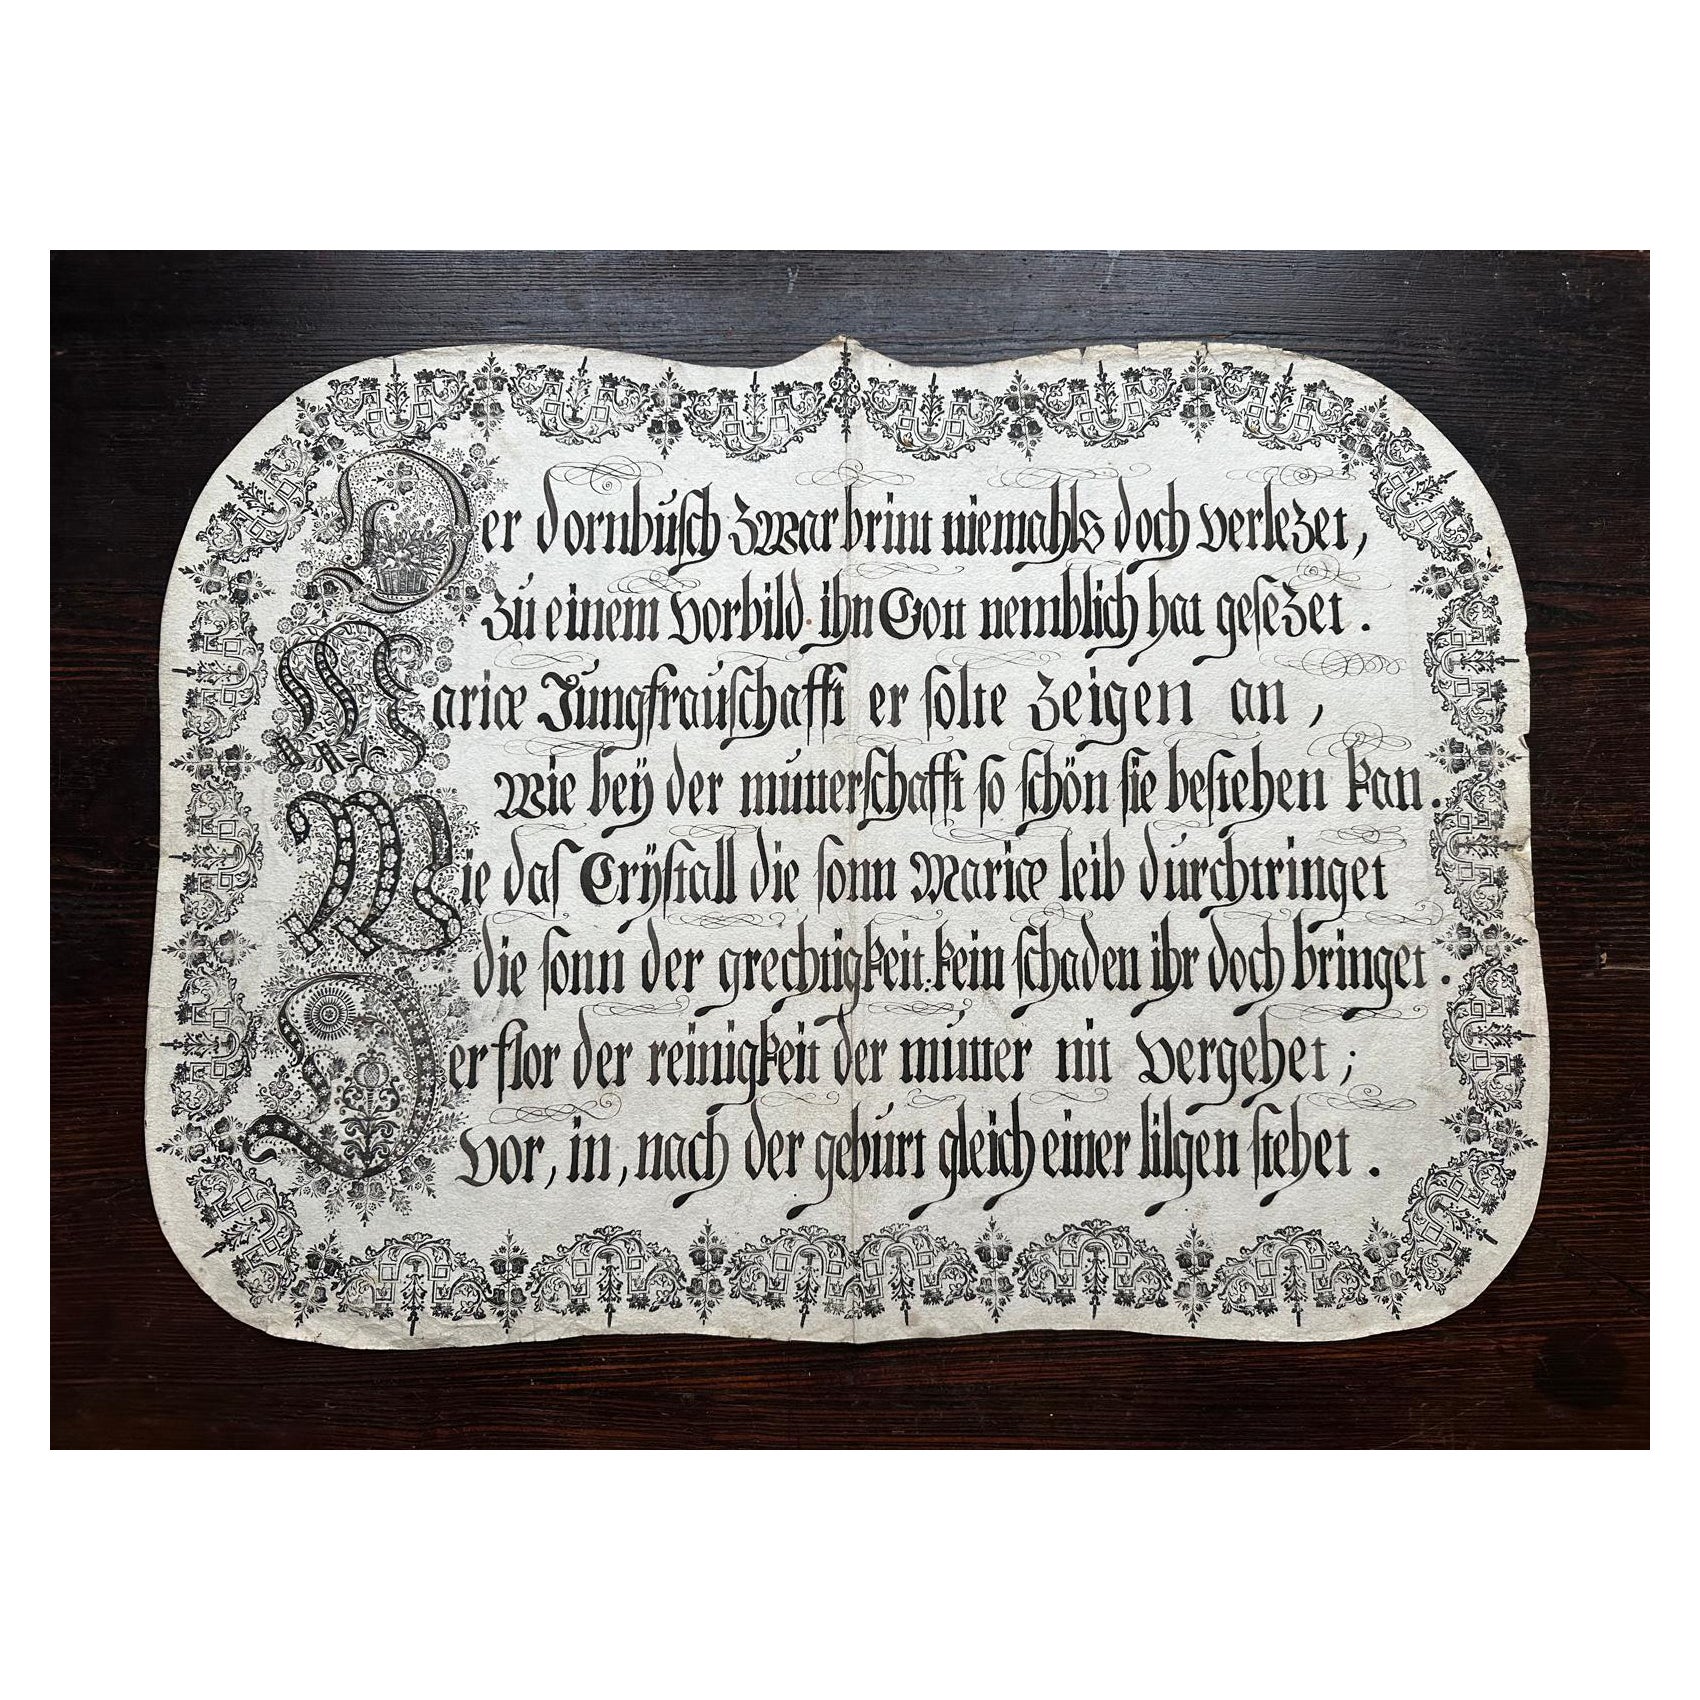 Der dornbusch zwar brint niemahls doch verlezet,
zu einem vorbild ihn Gott nemblich hat gesezet.
Mariæ Jungfrauschafft er solte zeigen an,
Wie beÿ der mutterschafft so schön sie bestehen kan.
Wie das Crÿstall die sonn Mariæ leib durchtringet
die sonn der grechtigkeit: kein schaden ihr doch bringet.
Der flor der reinigkeit der mutter nit vergehet;
vor, in, nach der geburt gleich einer lilgen stehet.